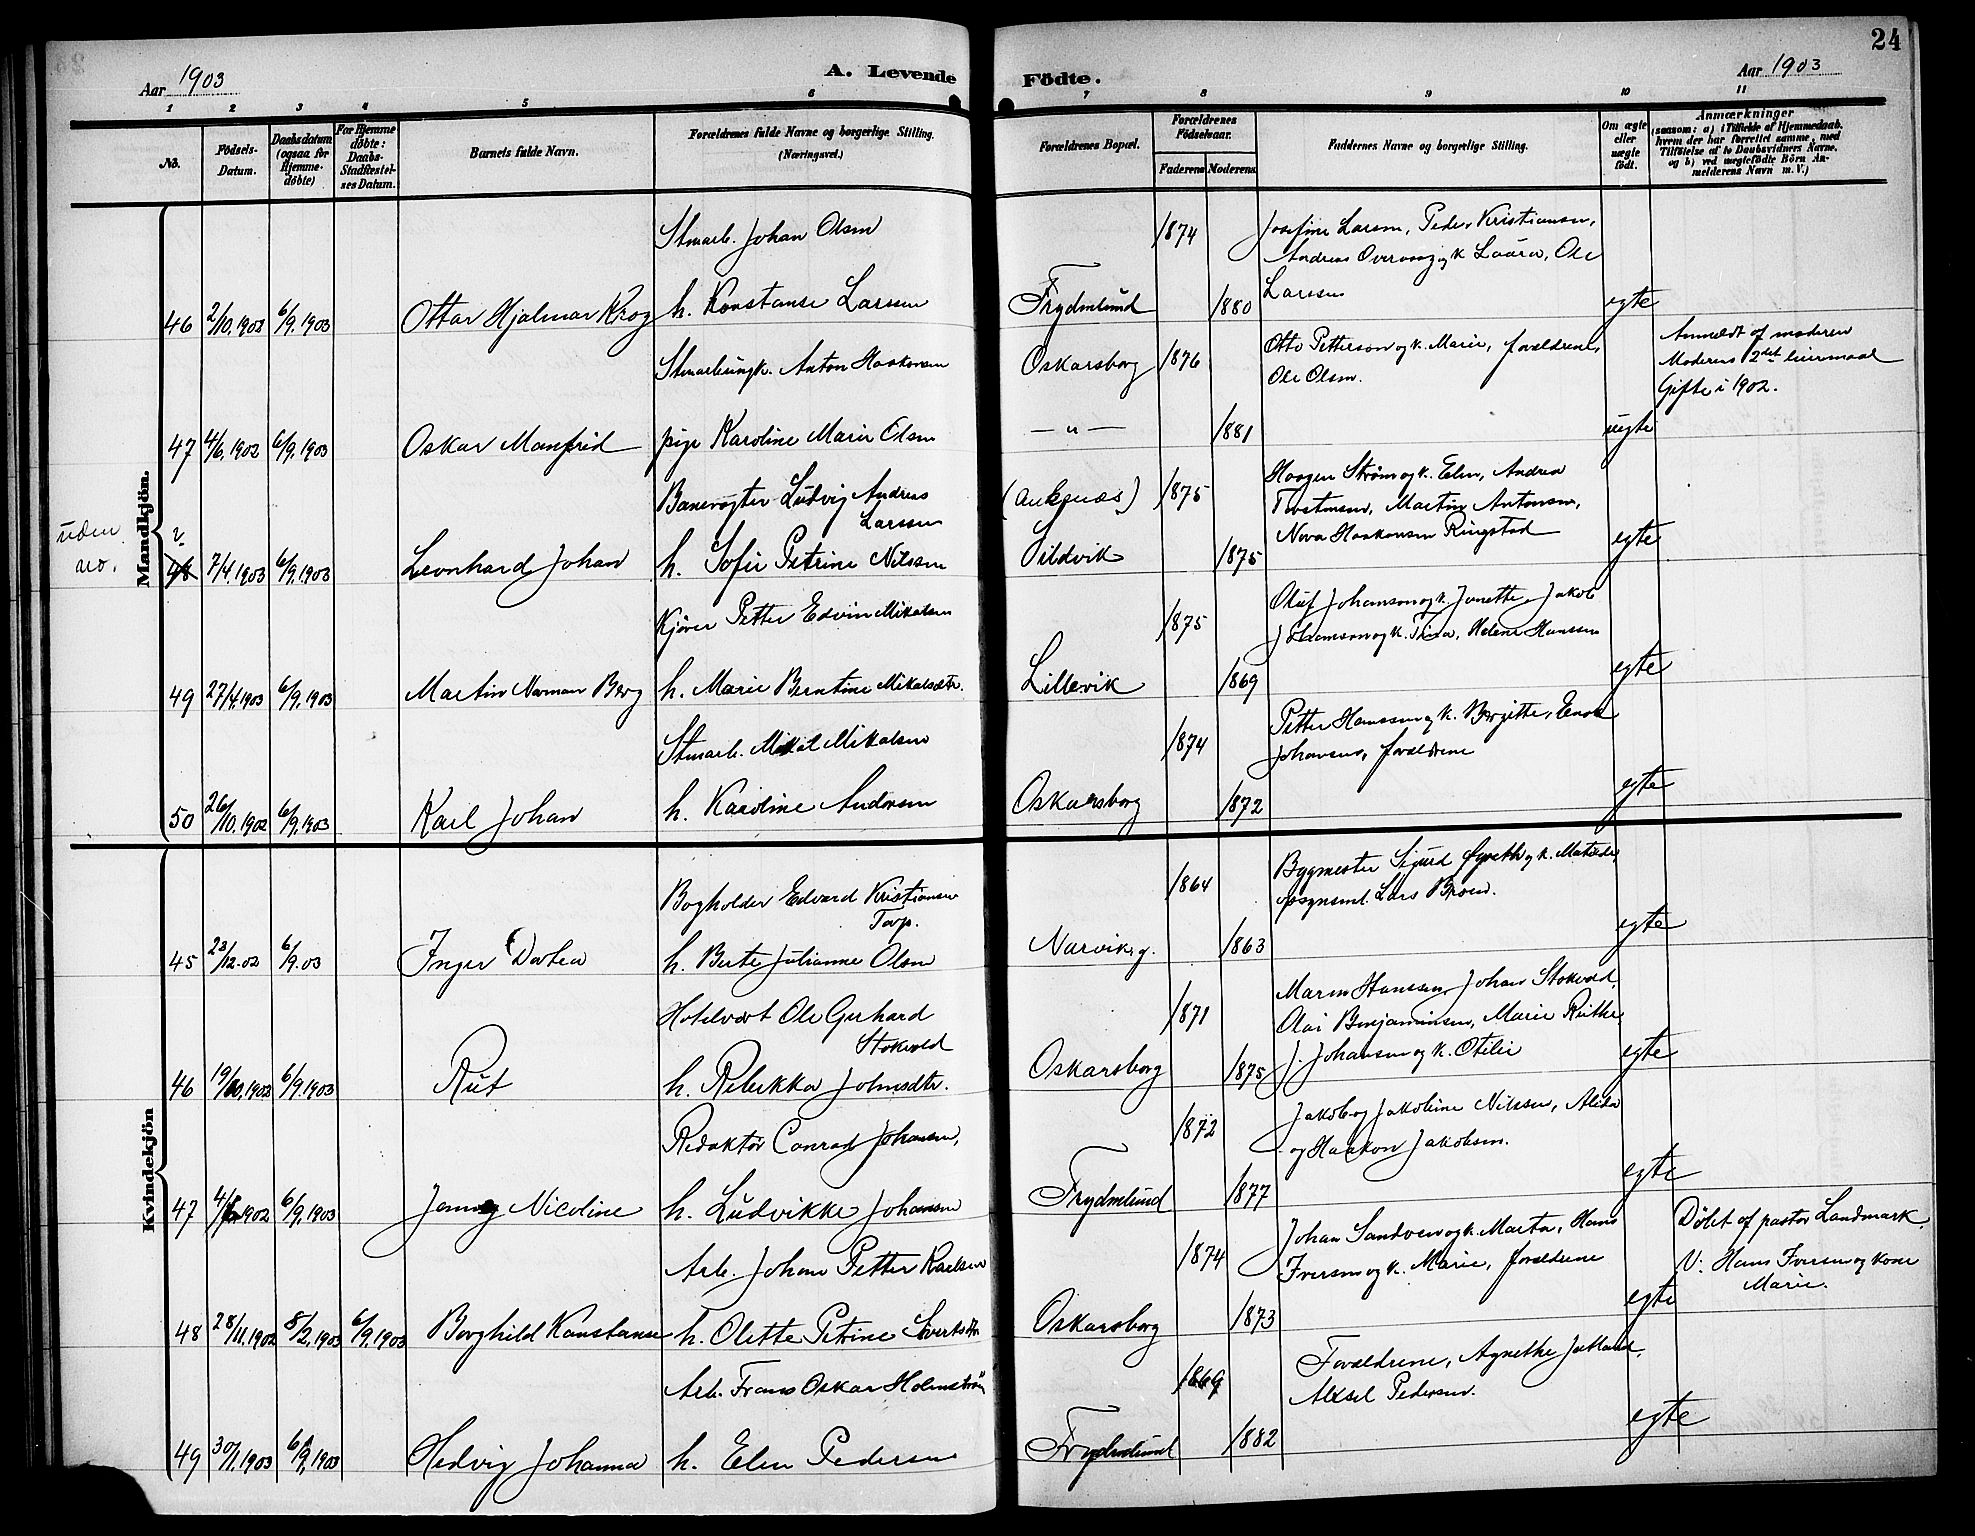 24
Aar 1903
A. Levende Födte.
Aar 1903
1 2 3 4 5 6 7 8 9 10 11
No.
Födsels-
Datum.
Daabsdatum
(ogsaa for
Hjemme-
döbte)
For Hjemme
döbte:
Daabs-
Stadfæstel-
ses Datum.
Barnets fulde Navn.
Forældrenes fulde Navne og borgerlige Stilling.
(Næringsvei.)
Forældrenes Bopæl.
Forældrenes
Födselsaar.
Faderens Moderens
Faddernes Navne og borgerlige Stilling.
Om ægte
eller
uægte
födt.
Anmærkninger
(saasom: a) i Tilfælde af Hjemmedaab,
hvem der har forrettet samme, med
Tilföielse af to Daabsvidners Navne,
og b) ved uægtefödte Börn An-
melderens Navn m. V.)
Mandkjön.
Stmarb. Johan Olsen 1874 Josefine Larsen, Peder Kristiansen,
Andreas og k Laura, Ole
Larsen
46 2/10.1902 6/9.1903 Ottar Hjalmar Krog h. Konstanse Larssen Frydenlund 1880 egte
Anton Haakonsen Oskarsborg 1876 Otto Petterson og k. Marie, forældrene,
Ole Olsen.
Anmeldt af moderen
Moderens 2det leiermaal
Gifte i 1902.
47 4/6.1902 6/9.1903 Oskar Manfrid pige Karoline Marie Olsen — " — 1881 uegte
Banevogter Ludvig Andreas
Larssen
(Ankenæs) 1875 Haagen Strøm og k. Elen, Andrea
Martin Antonsen,
Nora Haakonsen Ringstad
uden
no.
48 7/4.1903 6/9.1903 Leonhard Johan h. Sofie Petrine Nilssen Sildvik 1875 egte
Kjører Petter Edvin Mikalsen 1875 Oluf Johansen og k. Janette, Jakob
Johansen og k. Tina, Helene Hanssen
49 27/4.1903 6/9.1903 Martin Norman Berg h. Marie Berntine Mikalsdtr. Lillevik 1869 egte
Stmarb. Mikal Mikalsen 1874 Petter Hanssen og k. Birgitte, Enok
Johansen, forældrene
50 26/10.1902 6/9.1903 Karl Johan h. Karoline Andersen Oskarsborg 1872 egte
Kvindekjön
Bogholder Edvard Kristiansen
Torp.
1864 Bygmester Sigurd og k. Matilde,
opsynsmd. Lars Broen.
45 23/12.02 6/9.03 Inger Dortea h. Berte Julianne Olsen Narvik g. 1863 egte
Hotelvært Ole Gerhard
Stokvold
1871 Maren Hanssen, Johan Stokvold,
Olai Benjaminsen, Marie Ruthe,
J. Johansen og k. Otilie
46 19/10.1902 6/9.1903 Rut h. Rebekka Johnsdtr. Oskarsborg 1875 egte
Redaktør Conrad Johansen, 1872 Jakob og Jakobine Nilssen, Alida
og Haakon Jakobsen.
47 1902 6/9.1903 Jenny Nicoline h. Ludvikke Johansen Frydenlund 1877 egte
Arb. Johan Petter Karlsen 1874 Johan Sandven og k. Marta, Hans
Iversen og k. Marie, forældrene
Døbt af pastor Landmark.
V: Hans Iversen og kone
Marie.
48 28/11.1902 8/2.1903 6/9.1903 Borghild Konstanse h. Olette Petrine Sivertsdtr Oskarsborg 1873 egte
Arb. Frans Oskar Holmström 1869 Forældrene, Agnethe Jakland,
Aksel Pedersen.
49 30/1.1903 6/9.1903 Hedvig Johanna h. Elen Pedersen Frydenlund 1882 egte